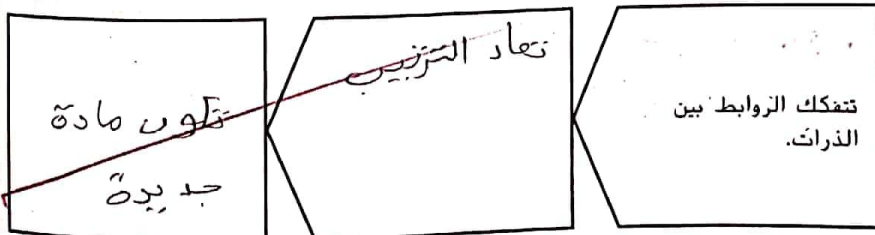 تتفكك الروابط بين
الذرات.
تعاد الترتيب
تكون مادة
جديدة